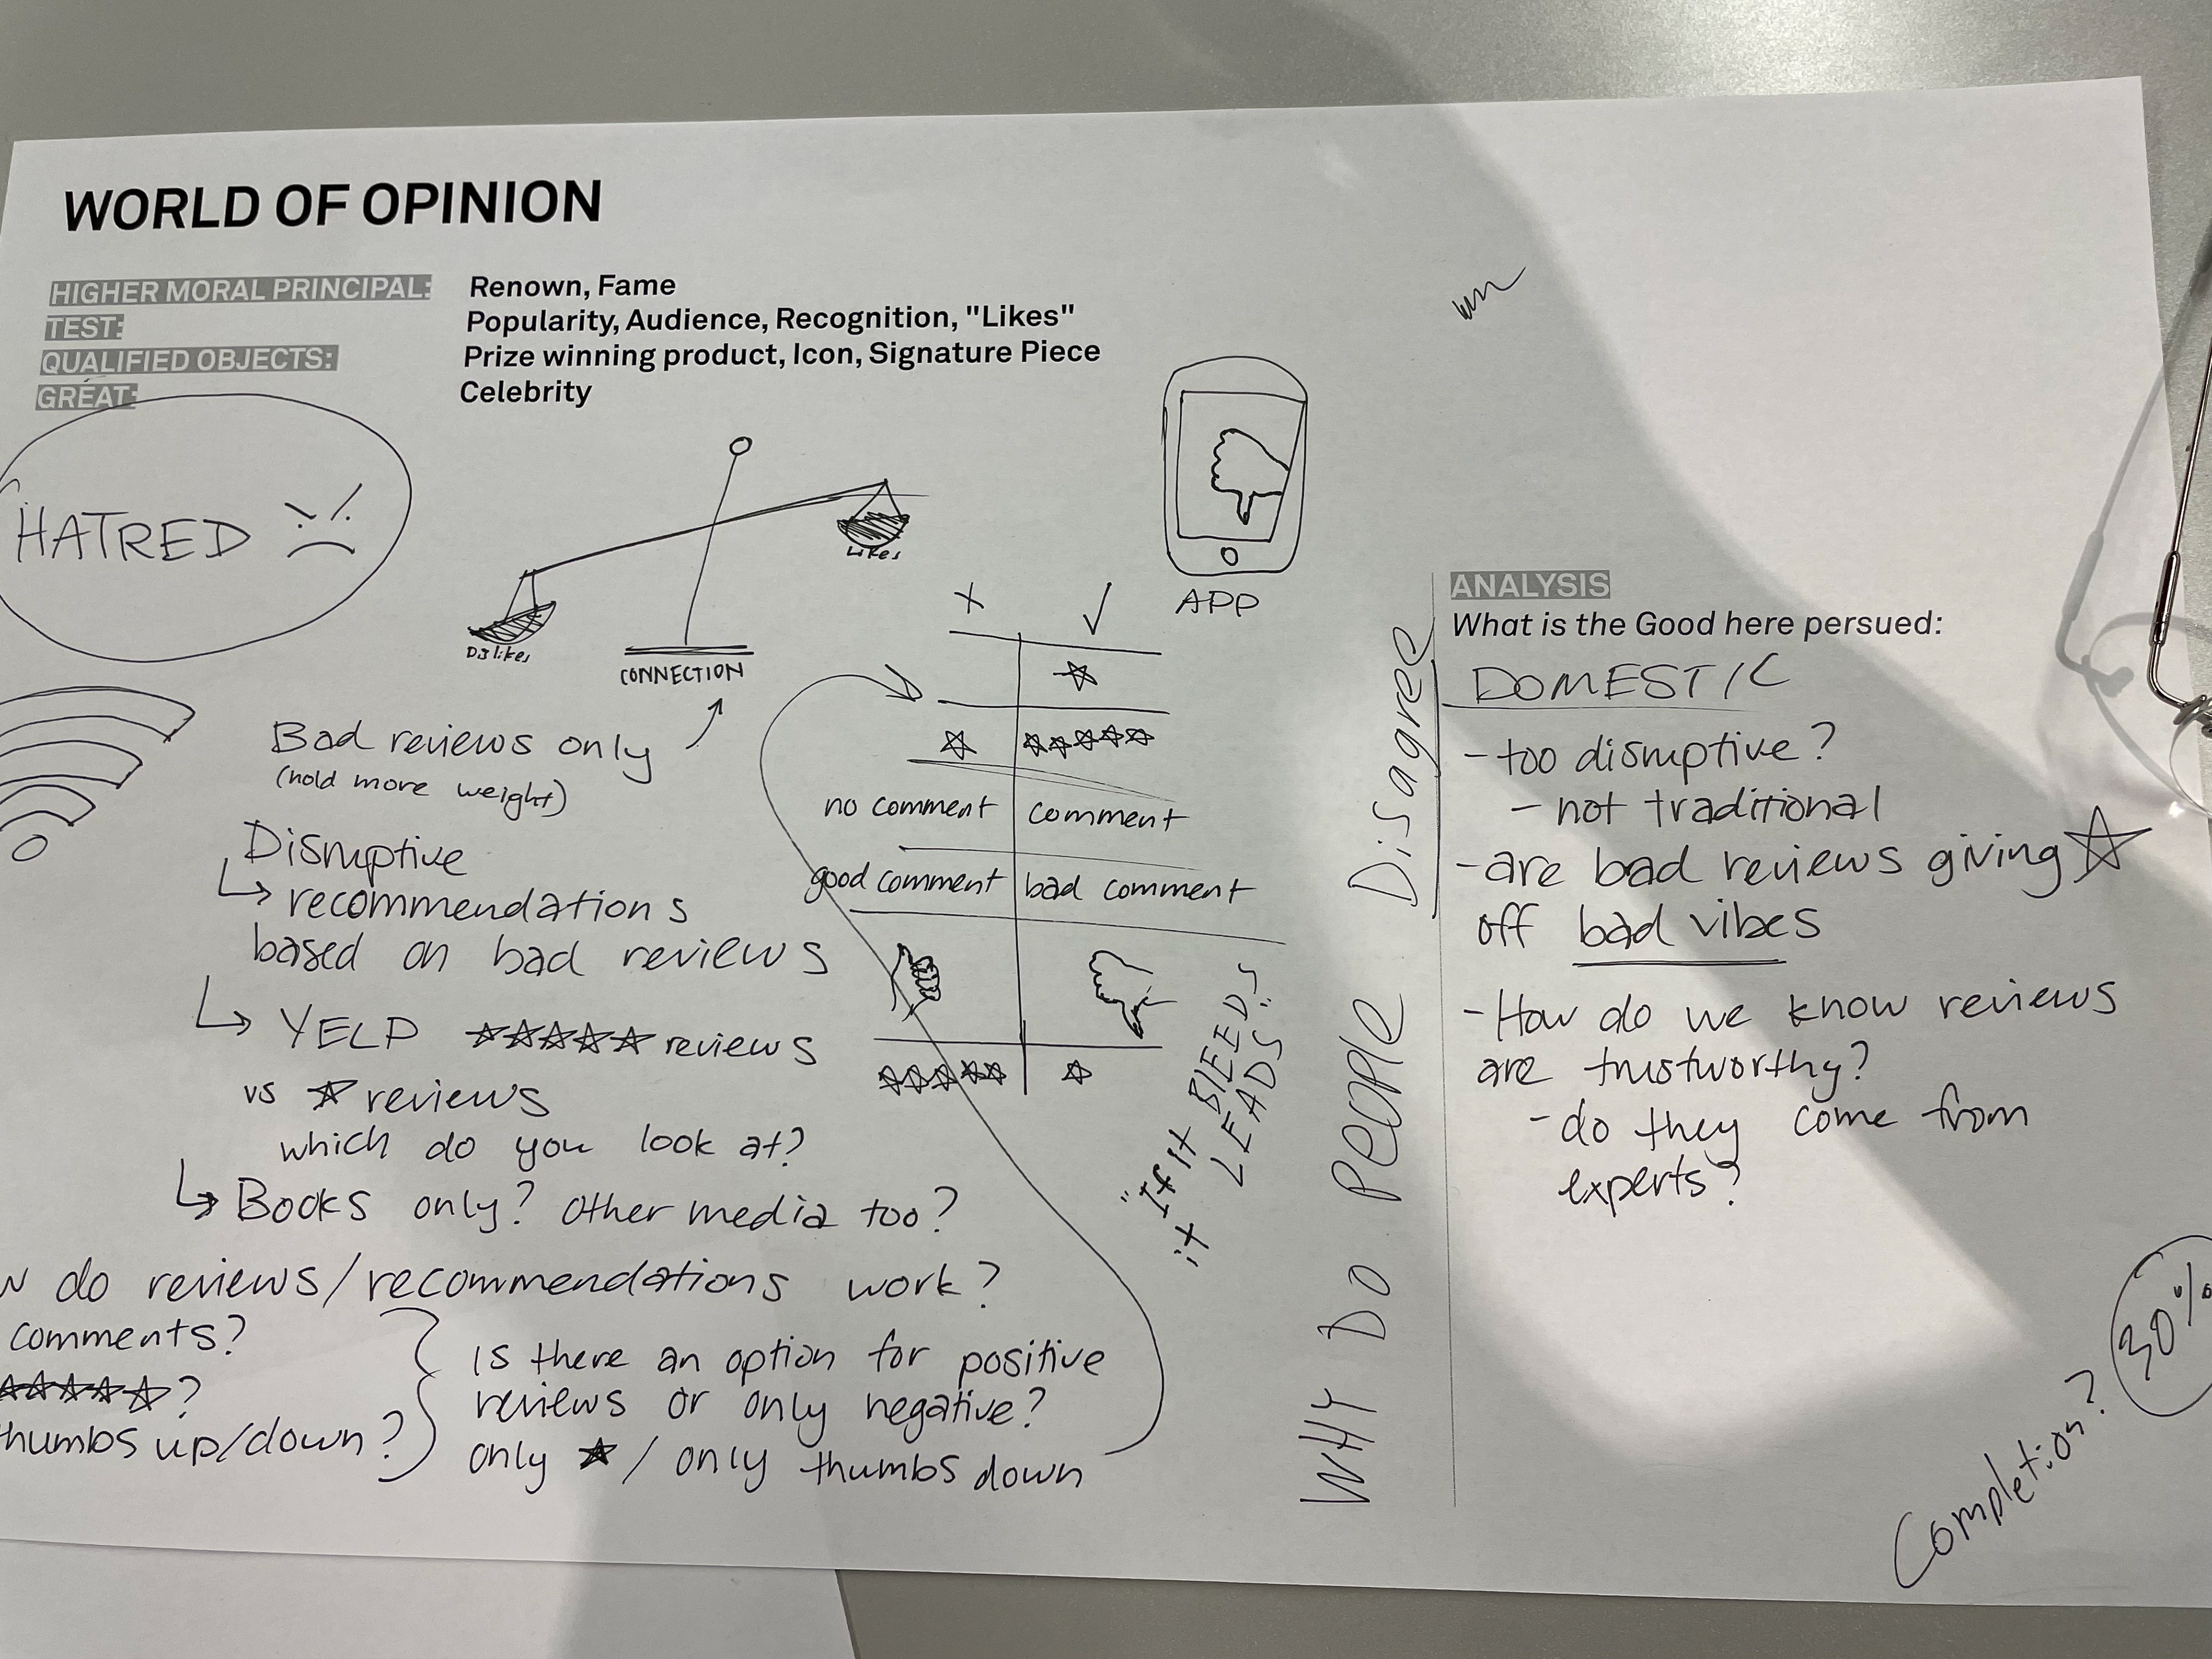 WORLD OF OPINION
HIGHER MORAL PRINCIPAL: Renown, Fame
TEST: Popularity, Audience, Recognition, "Likes"
QUALIFIED OBJECTS: Prize winning product, Icon, Signature Piece
GREAT: Celebrity
HATRED
Likes
Dislikes
CONNECTION
APP
Bad reviews only
(hold more weight)
Disruptive
recommendations
based on bad reviews
YELP ☆☆☆☆☆ reviews
vs ☆ reviews
which do you look at?
Books only? Other media too?
do reviews/recommendations work?
comments?
☆☆☆☆☆?
thumbs up/down?
Is there an option for positive
reviews or only negative?
only ★ / only thumbs down
X ✓
☆
☆ ☆☆☆☆☆
no comment comment
good comment bad comment
☆☆☆☆☆ ☆
"If it BLEEDS
it LEADS"
WHY DO PEOPLE Disagree
ANALYSIS
What is the Good here persued:
DOMESTIC
- too disruptive?
- not traditional
- are bad reviews giving ☆
off bad vibes
- How do we know reviews
are trustworthy?
- do they come from
experts?
Completion?
30%